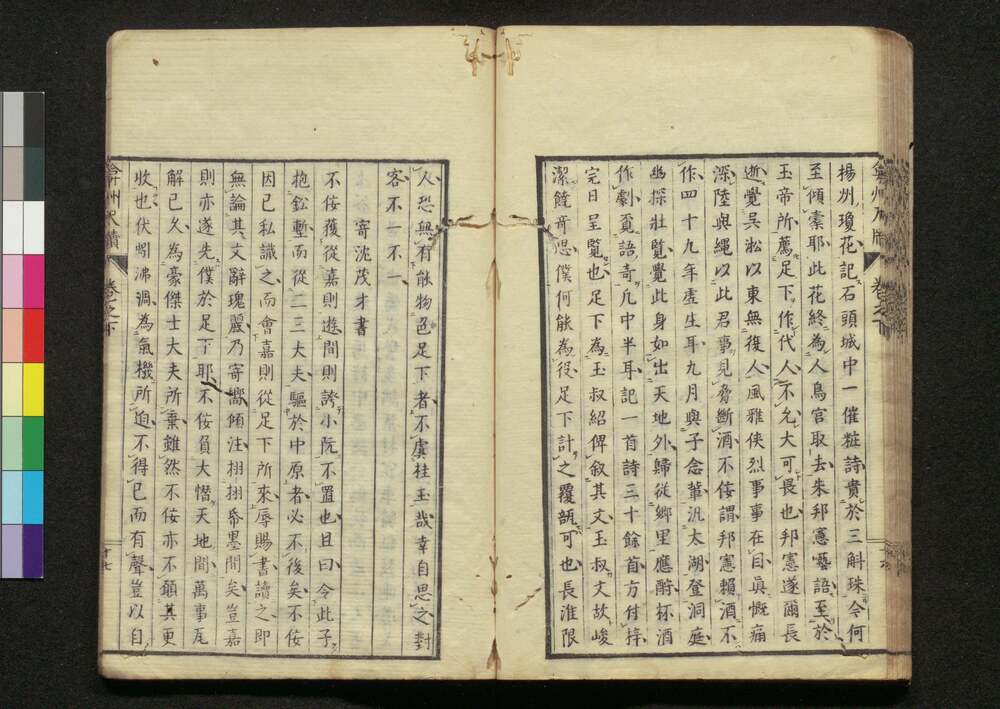 揚州瓊花記石頭城中一催粧詩貴於三斛珠今何
至傾索耶此花終為人鳥官取去朱邦憲藝語至於
玉帝所薦足下作代人不允大可畏也邦憲遂爾長
逝覺吳淞以東無復人風雅俠烈事事在目眞慨痛
深陸與繩以此君事見脅斷酒不佞謂邦憲賴酒不
作四十九年虛生耳九月與子念輩汎太湖登洞庭
幽探壯覽覺此身如出天地外歸從鄉里應酧杯酒
作劇覔語奇凡中半耳記一首詩三十餘首方付梓
完日呈覽也足下為玉叔紹俾叙其文玉叔文故峻
潔饒奇思僕何能為役足下計之覆瓿可也長淮限
人恐無有能物色足下者不虞桂玉哉幸自思之對
客不一不一
寄沈茂才書
不佞獲從嘉則遊間則誇小阮不置也且曰令此子
抱鉛塹而從二三大夫驅於中原者必不後矣不佞
因已私識之而會嘉則從足下所來辱賜書讀之即
無論其文辭瑰麗乃寄嚮傾注栩栩楮墨間矣豈嘉
則亦遂先僕於足下耶不佞負大憯天地間萬事瓦
解已久為豪傑士大夫所棄雖然不佞亦不願其更
收也伏蜩沸凋為氣機所迫不得已而有聲豈以自
弇州尺牘 卷之下 十七